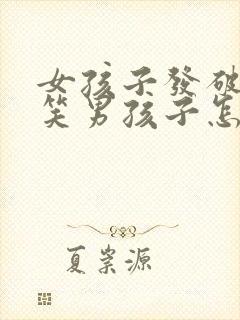 女孩子發破
笑男孩子怎
夏崇源